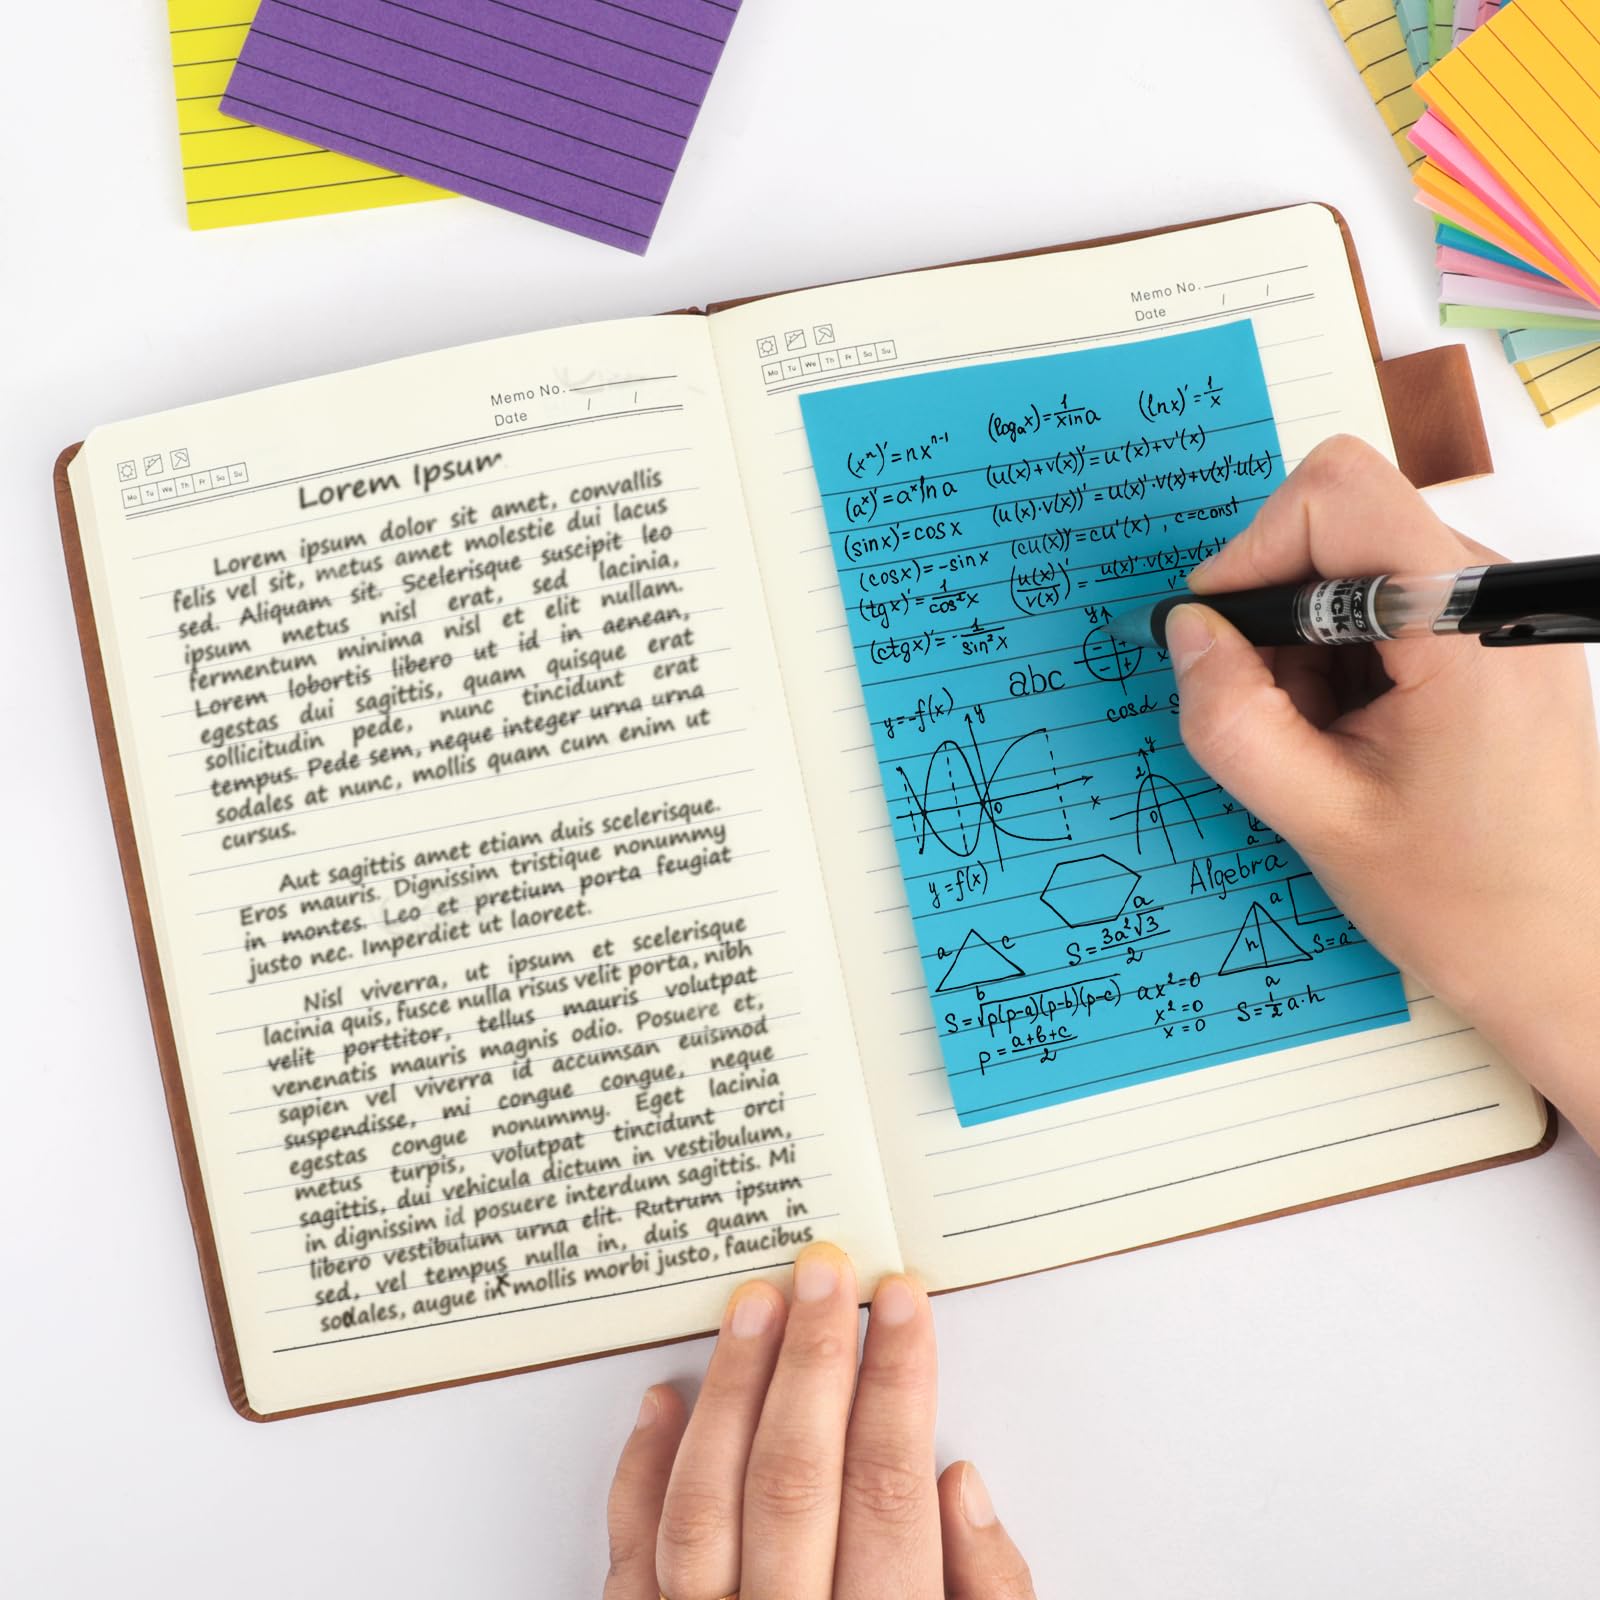 Memo No.
Date / /
Mo Tu We Th Fr Sa Su
Lorem Ipsum
Lorem ipsum dolor sit amet, convallis
felis vel sit, metus amet molestie dui lacus
sed. Aliquam sit. Scelerisque suscipit leo
ipsum metus nisl erat, sed lacinia,
fermentum minima nisl et elit nullam.
Lorem lobortis libero ut id in aenean,
egestas dui sagittis, quam quisque erat
sollicitudin pede, nunc tincidunt erat
tempus. Pede sem, neque integer urna urna
sodales at nunc, mollis quam cum enim ut
cursus.
Aut sagittis amet etiam duis scelerisque.
Eros mauris. Dignissim tristique nonummy
in montes. Leo et pretium porta feugiat
justo nec. Imperdiet ut laoreet.
Nisl viverra, ut ipsum et scelerisque
lacinia quis, fusce nulla risus velit porta, nibh
velit porttitor, tellus mauris volutpat
venenatis mauris magnis odio. Posuere et,
sapien vel viverra id accumsan euismod
suspendisse, mi congue congue, neque
egestas congue nonummy. Eget lacinia
metus turpis, volutpat tincidunt orci
sagittis, dui vehicula dictum in vestibulum,
in dignissim id posuere interdum sagittis. Mi
libero vestibulum urna elit. Rutrum ipsum
sed, vel tempus nulla in, duis quam in
sodales, augue in mollis morbi justo, faucibus
Memo No.
Date / /
Mo Tu We Th Fr Sa Su
(xⁿ)′=nxⁿ⁻¹
(logₐx)=1/xlna
(lnx)′=1/x
(aˣ)′=aˣlna
(u(x)+v(x))′=u′(x)+v′(x)
(sinx)′=cosx
(u(x)·v(x))′=u(x)′·v(x)+v(x)′·u(x)
(cosx)=-sinx
(cu(x))′=cu′(x), c=const
(tgx)′=1/cos²x
(u(x)/v(x))′=u(x)′·v(x)-v(x)′/v²
(ctgx)′=-1/sin²x
y
x
abc
cosα
y=-f(x)
y
0
x
y=f(x)
y
2
0
x
Algebra
a
S=3a²√3/2
a c
b
S=√p(p-a)(p-b)(p-c)
p=a+b+c/2
ax²=0
x²=0
x=0
a
h
a
S=1/2a·h
S=a²